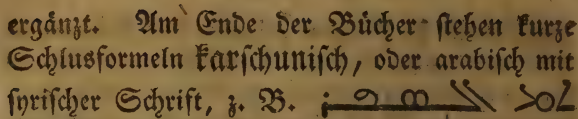 ergänzt. Am Ende der Bücher stehen kurze
Schlusformeln karschunisch, oder arabisch mit
syrischer Schrift, z. B.